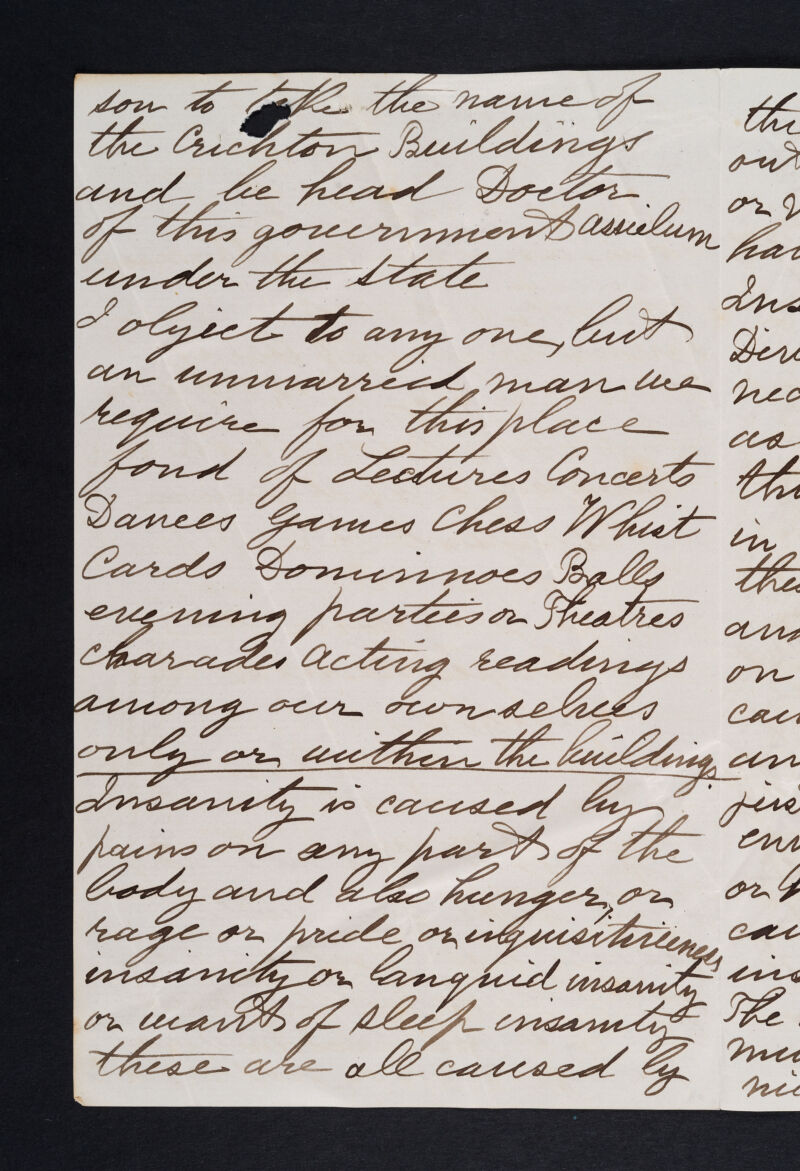 son to take the name of
the Crichton Buildings
and be head Doctor
of this government assielum
under the State
I object to any one, but
an unmarreid man we
require for this place
fond of Lectures Concerts
Dances Games Chess Whist
Cards Dominnoes Balls
evening parties or Theatres
charades acting readings
among our own selves
only or within the buildings
Insanity is caused by
pains on any part of the
body and also hunger, or
rage or pride or inquisitiveness
insanity or languid insanity
or want of sleep insanity
these are all caused by
the
out
or
had
Ins
Dire
nec
as
the
in
thes
and
on
cau
an
jus
env
or
cau
ins
The
mu
nic